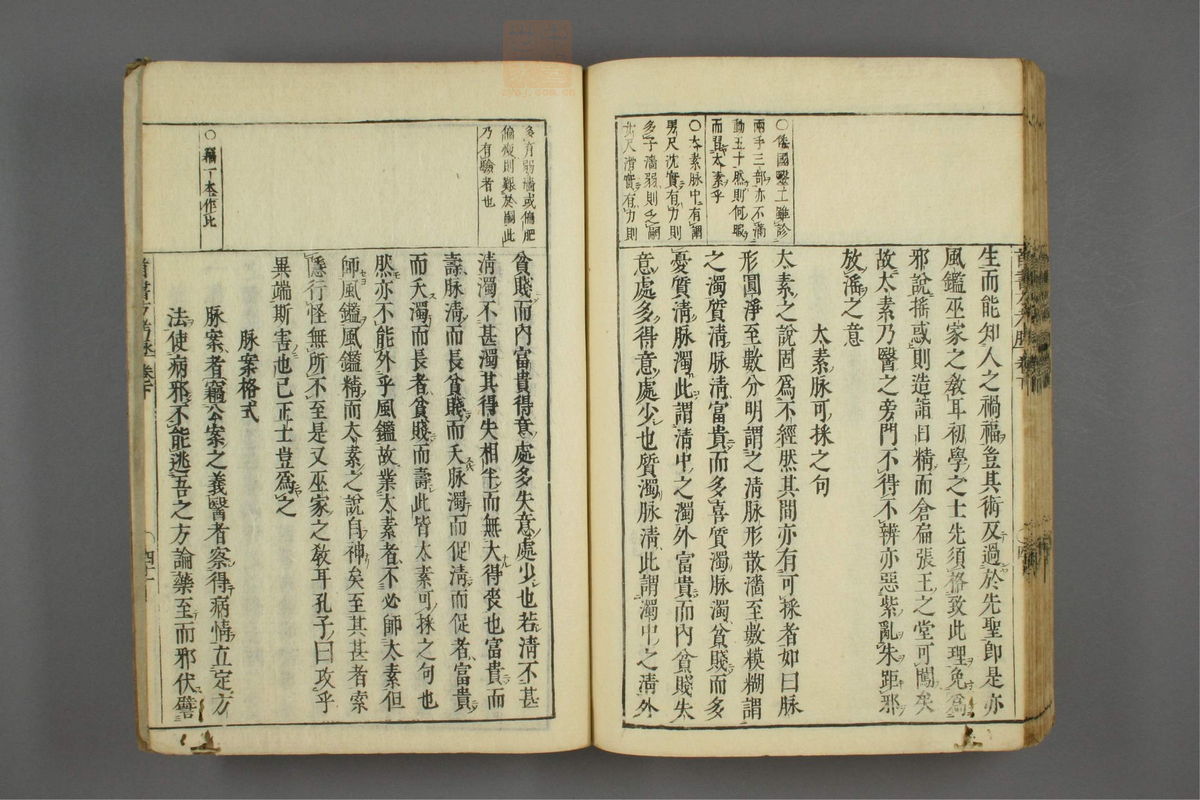 生而能知人之禍福豈其術反過於先聖卽是亦
風鑑巫家之敎耳初學之士先須格致此理免爲
邪說搖惑則造詣日精而倉扁張王之堂可闖矣
故太素乃醫之旁門不得不辨亦惡紫亂朱距邪
放滛之意
太素脉可採之句
太素之說固爲不經然其間亦有可採者如曰脉
形圓淨至數分明謂之淸脉形散濇至數模糊謂
之濁質淸脉淸富貴而多喜質濁脉濁貧賤而多
憂質淸脉濁此謂淸中之濁外富貴而內貧賤失
意處多得意處少也質濁脉淸此謂濁中之淸外
〇倭國醫工雖診
兩手三部亦不滿
動五十然則何暇
而談太素乎
〇太素脉中有謂
男尺沈實有力則
多子濇弱則乏嗣
女尺滑實有力則
貧賤而內富貴得意處多失意處少也若淸不甚
淸濁不甚濁其得失相半而無大得喪也富貴而
壽脉淸而長貧賤而夭脉濁而促淸而促者富貴
而夭濁而長者貧賤而壽此皆太素可採之句也
然亦不能外乎風鑑故業太素者不必師太素但
師風鑑風鑑精而太素之說自神矣至其甚者索
隱行怪無所不至是又巫家之敎耳孔子曰攻乎
異端斯害也已正士豈爲之
脉案格式
脉案者竊公案之義醫者察得病情立定方
法使病邪不能逃吾之方論藥至而邪伏譬
多有弱濇或偏肥
偏瘦則艱於嗣此
乃有驗者也
〇竊一本作比